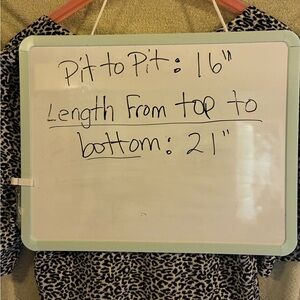 Pit to Pit: 16"
Length From top to
bottom: 21"